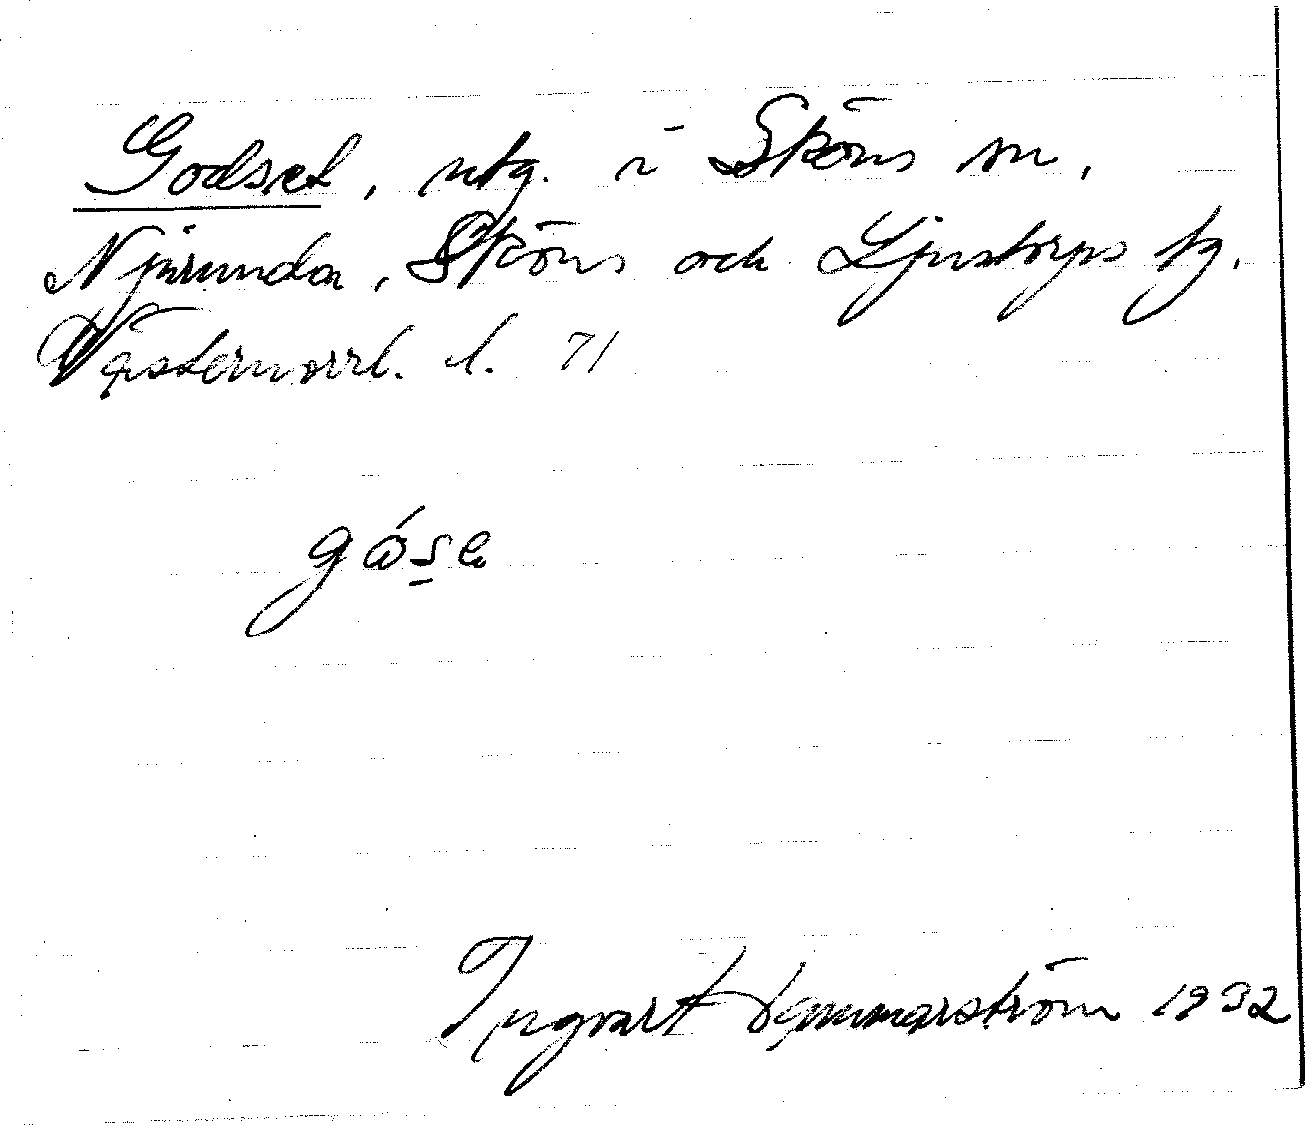 Godset, utg. i Sköns sn,
Njurunda, Sköns och Ljustorps tg,
Västernorrl. l. 71
gó̀s̲e
Ingvart Hammarström 1932